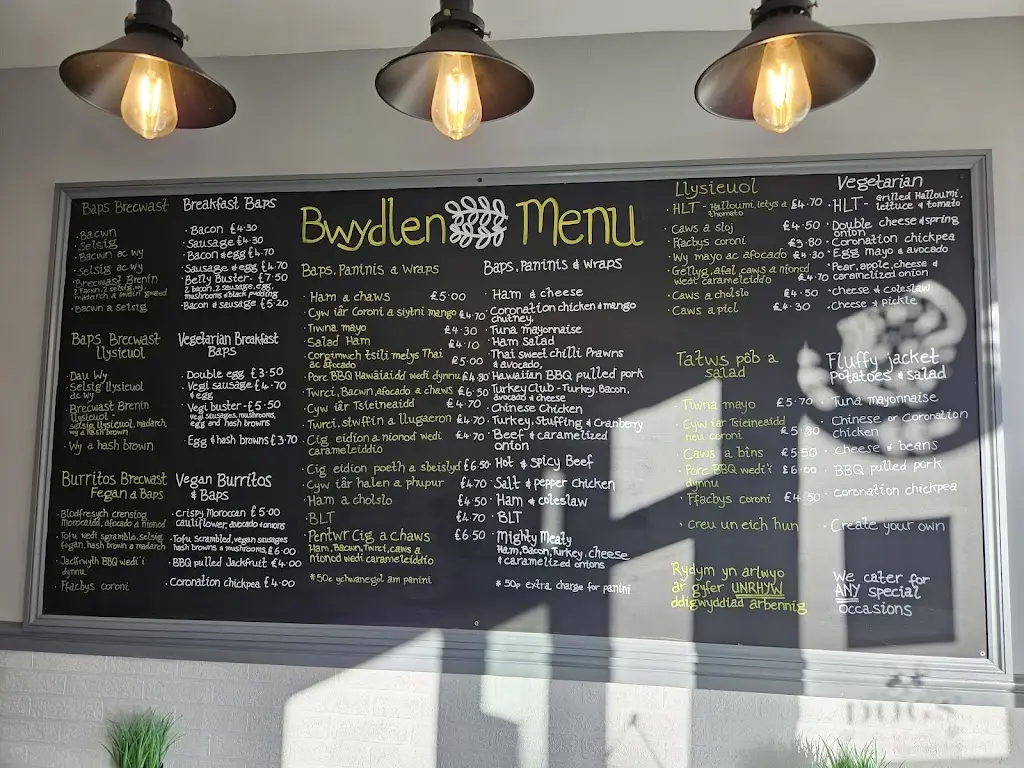 Bwydlen Menu
Baps Brecwast
· Bacwn
· Selsig
· Bacwn ac wy
· Selsig ac wy
· Brecwast Brenin
2 Bacwn, 2 selsig, wy,
madarch a
· Bacwn a selsig
Breakfast Baps
· Bacon £4·30
· Sausage £4·30
· Bacon & egg £4·70
· Sausage & egg £4·70
· Belly Buster - £7·50
2 bacon, 2 sausage, egg,
mushrooms & black pudding
· Bacon & sausage £5·20
Baps Brecwast
Llysieuol
· Dau Wy
· Selsig llysieuol
ac wy
· Brecwast Brenin
Llysieuol -
selsig llysieuol, madarch,
wy a hash brown
· Wy a hash brown
Vegetarian Breakfast
Baps
· Double egg £3·50
· Vegi sausage £4·70
& egg
· Vegi buster - £5·50
vegi sausages, mushrooms,
egg and hash brown
· Egg & hash browns £3·70
Burritos Brecwast
Fegan a Baps
· Blodfresych crensiog
morocaidd, afocado a nionod
· Tofu wedi sgramblo, selsig
fegan, hash brown a madarch
· Jacffrwyth BBQ wedi'i
dynnu
· Ffacbys coroni
Vegan Burritos
& Baps
· Crispy Moroccan £5·00
cauliflower, avocado & onions
· Tofu, Scrambled, vegan sausages
hash browns & mushrooms, £6·00
· BBQ pulled Jackfruit £4·00
· Coronation chickpea £4·00
Baps, Paninis a Wraps
· Ham a chaws £5·00
· Cyw iâr Coroni a siytni mango £4·70
· Tiwna mayo £4·30
· Salad Ham £4·10
· Corgimwch tsili melys Thai
ac afocado £5·00
· Porc BBQ Hawaiaidd wedi dynnu £4·80
· Twrci, Bacwn, afocado a chaws £6·50
· Cyw iâr Tsieineaidd £4·70
· Twrci, stwffin a llugaeron £4·70
· Cig eidion a nionod wedi £4·70
carameleiddio
· Cig eidion poeth a sbeislyd £6·50
· Cyw iâr halen a phupur £4·70
· Ham a cholslo £4·50
· BLT £4·70
· Pentwr Cig, a chaws £6·50
Ham, Bacwn, Twrci, caws a
nionod wedi carameleiddio
*50c ychwanegol am panini
Baps, Paninis & Wraps
· Ham & cheese
· Coronation chicken & mango
chutney,
· Tuna mayonnaise
· Ham Salad
· Thai sweet chilli Prawns
& avocado,
· Hawaiian BBQ pulled pork
· Turkey Club - Turkey, Bacon,
avocado & cheese
· Chinese Chicken
· Turkey, Stuffing & Cranberry
· Beef & caramelized
onion
· Hot & Spicy Beef
· Salt & pepper Chicken
· Ham & coleslaw
· BLT
· Mighty Meaty
Ham, Bacon, Turkey, cheese
& caramelized onions
* 50p extra charge for panini
Llysieuol
· HLT - Halloumi, letys a £4·70
thomato
· Caws a sloj £4·50
· Ffacbys coroni £3·80
· Wy mayo ac afocado £4·30
· Gellyg, afal, caws a nionod
wedi carameleiddio £4·70
· Caws a cholslo £4·50
· Caws a picl £4·30
Vegetarian
· HLT - Grilled Halloumi,
lettuce & tomato
· Double cheese & spring
onion
· Coronation chickpea
· Egg mayo & avocado
· Pear, apple, cheese &
caramelized onion
· Cheese & coleslaw
· Cheese & pickle
Tatws pôb a
salad
· Tiwna mayo £5·70
· Cyw iâr Tsieineaidd
neu coroni £5·80
· Caws a bîns £5·50
· Porc BBQ wedi'i £6·00
dynnu
· Ffacbys coroni £4·50
· Creu un eich hun
Fluffy jacket
potatoes & salad
· Tuna mayonnaise
· Chinese or Coronation
chicken
· Cheese & beans
· BBQ pulled pork
· Coronation chickpea
· Create your own
Rydym yn arlwyo
ar gyfer UNRHYW
ddigwyddiad arbennig
We cater for
ANY special
occasions
DOGS